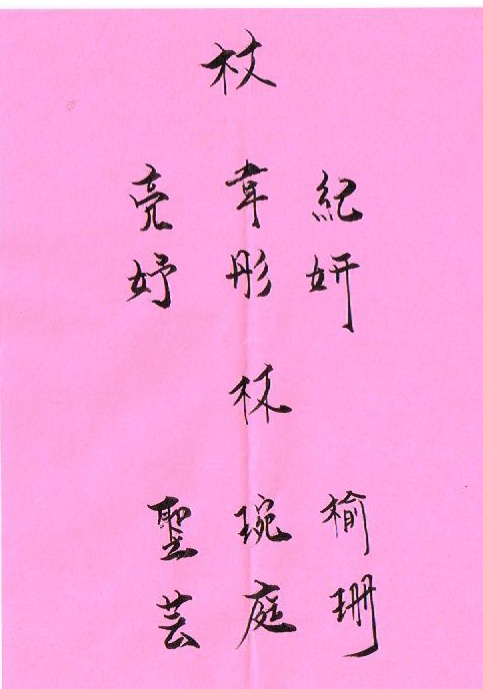 杖
紀妍
韋彤
亮妤
林
榆珊
琬庭
聖芸